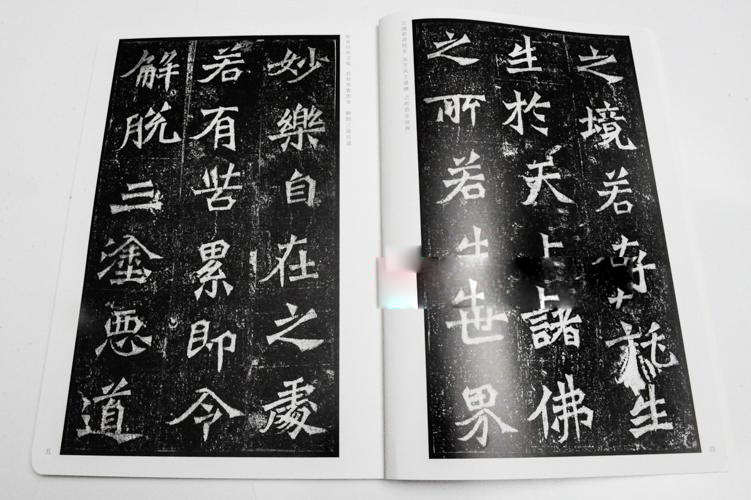 之境若存生
生於天上諸佛
之所若生世界
妙樂自在之處
若有苦累即令
解脫三塗惡道
五
四